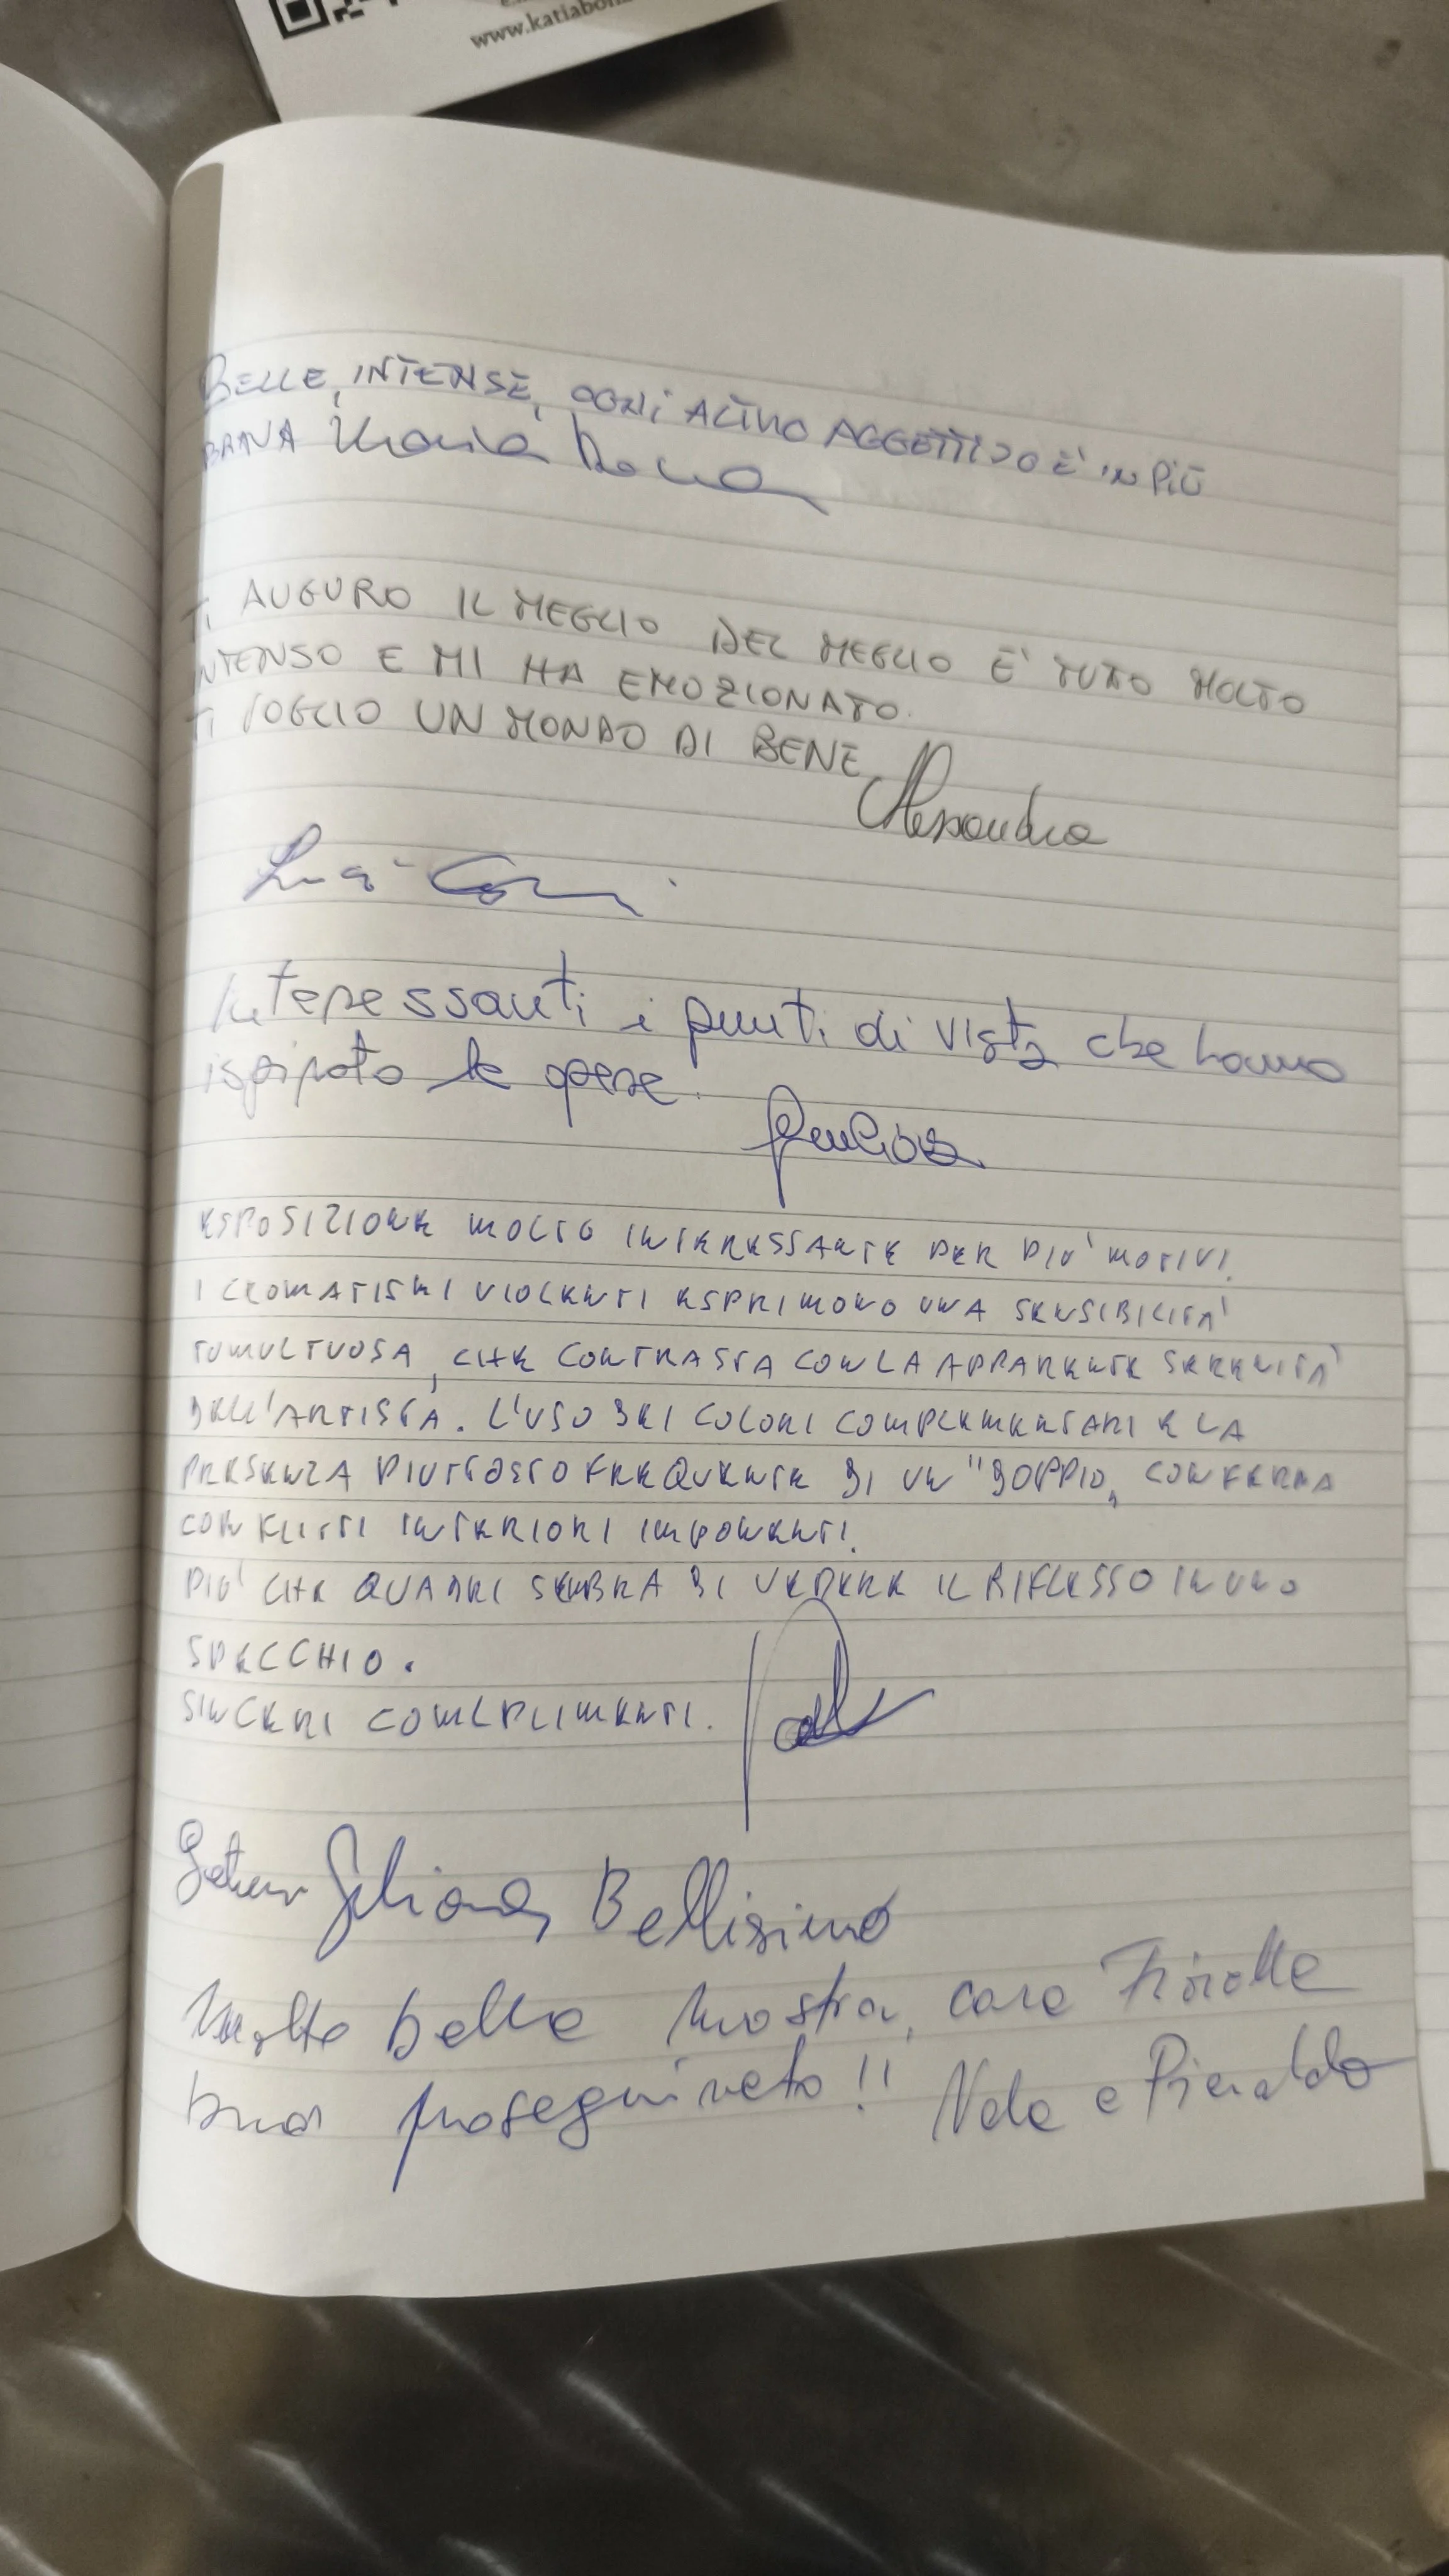 www.katiabon
BELLE, INTENSE, OGNI ALTRO AGGETTIVO È IN PIÙ
BRAVA Maria
TI AUGURO IL MEGLIO DEL MEGLIO È TUTTO MOLTO
INTENSO E MI HA EMOZIONATO.
TI VOGLIO UN MONDO DI BENE
Alessandra
Interessanti i punti di vista che hanno
ispirato le opere.
ESPOSIZIONE MOLTO INTERESSANTE PER PIU' MOTIVI.
I CROMATISMI VIOLENTI ESPRIMONO UNA SENSIBILITA'
TUMULTUOSA, CHE CONTRASTA CON LA APPARENTE SERENITA'
DELL'ARTISTA. L'USO DEI COLORI COMPLEMENTARI E LA
PRESENZA PIUTTOSTO FREQUENTE DI UN "DOPPIO" CONFERMA
CONFLITTI INTERIORI IMPONENTI.
PIU' CHE QUADRI SEMBRA DI VEDERE IL RIFLESSO IN UNO
SPECCHIO.
SINCERI COMPLIMENTI.
Bellisimo
Molto bella mostra, cara
buon proseguimento!! e Pieraldo